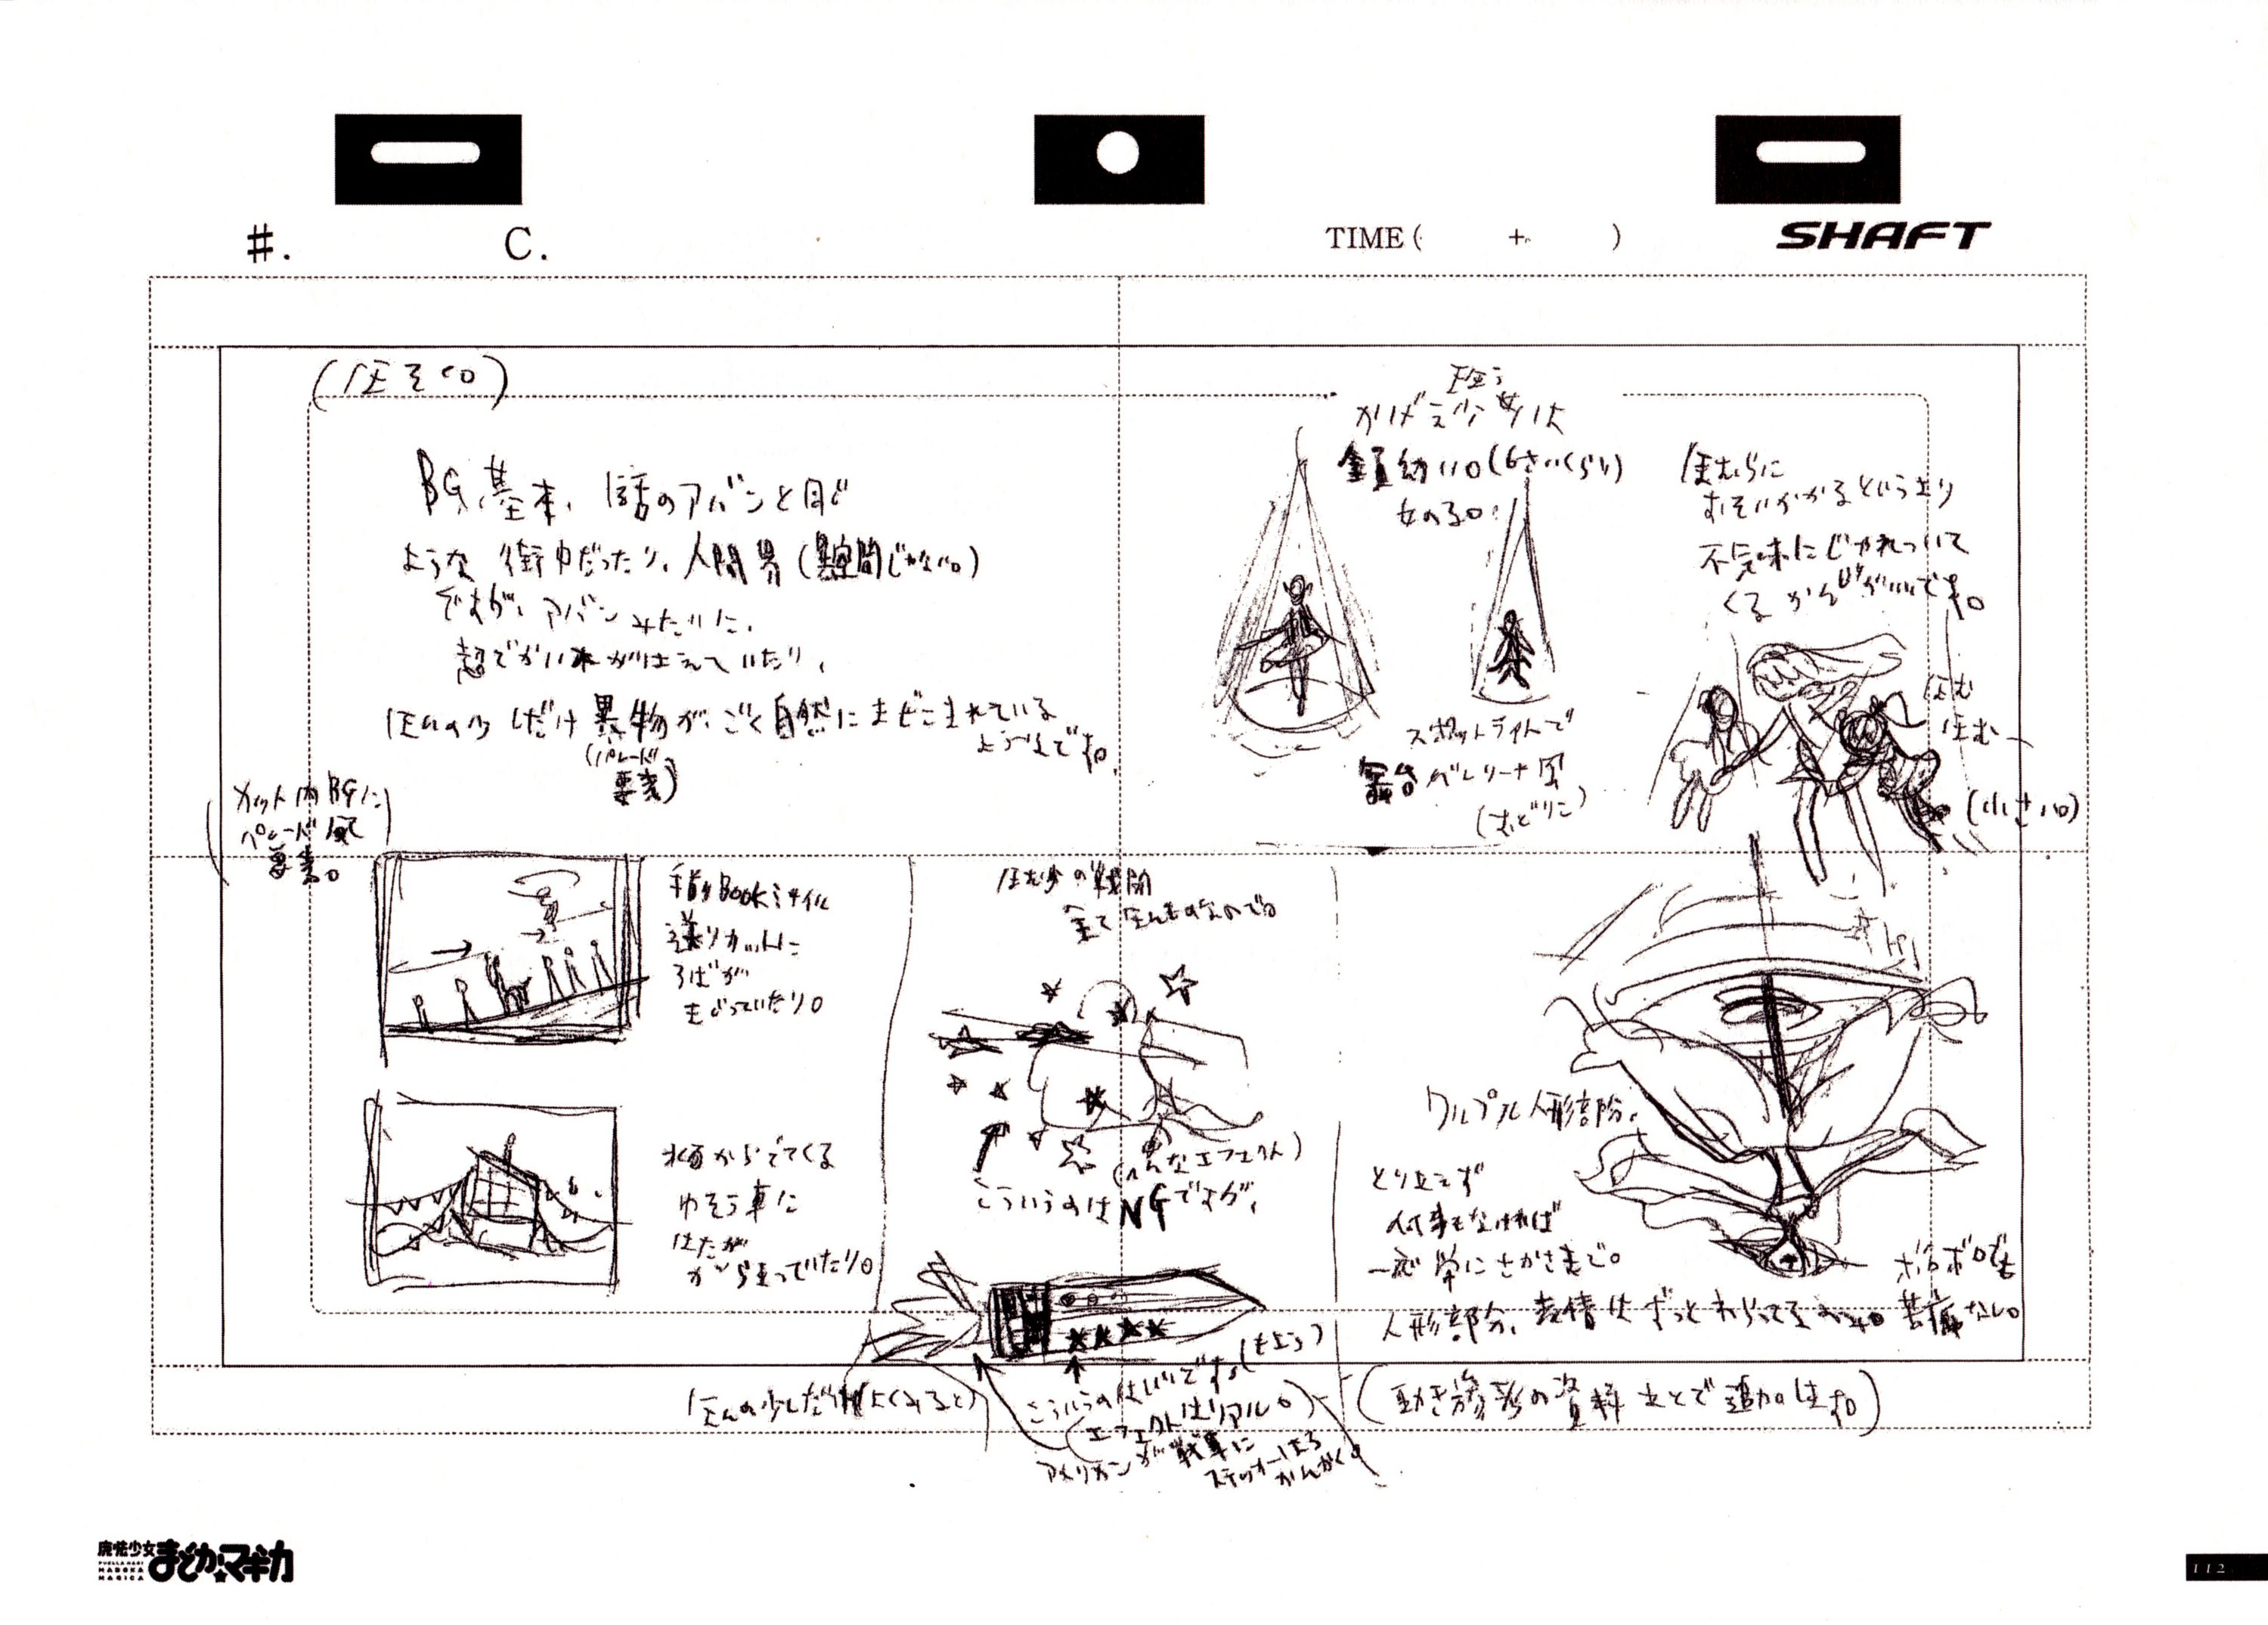 #.
C.
TIME ( + )
SHAFT
BG、基本、1話のアバンと同じ
ような街中だったり、人間界(異空間じゃない。)
ですが、アバンみたいに、
超でかい木がはえていたり、
ほんの少しだけ異物が、ごく自然にまざこまれている
ようなですね。
(パレード
要素)
カット内BGに
パレード
要素。
かげえ少女は
全員幼い。(6さいくらい)
女の子。
スポットライトで
舞台バレリーナ風
(おどりこ)
ほむらに
おそいかかるというより
不気味にじゃれついて
くるかんじがいいです。
ほむ
ほむ
(小さい。)
手前BOOKミサイル
送りカットに
ろばが
まざっていたり。
水面からでてくる
ゆそう車に
はたが
からまっていたり。
ほむらの戦闘
全てほんものなので。
(へんなエフェクト)
こういうのはNGですが、
ほんの少しだけ(よくみると)
こういうのはいいですね
(エフェクトはリアル。)
アメリカンが戦車に
ステッカーはる
かんかく。
ワルプル人形部分。
とりあえず
何事もなければ
一応常にさかさまで。
人形部分、表情はずっとわらってる
ボロボロでも
苦痛なし。
(動き参考の資料あとで追加します。)
魔法少女
まどか☆マギカ
PUELLA MAGI
MADOKA
MAGICA
112